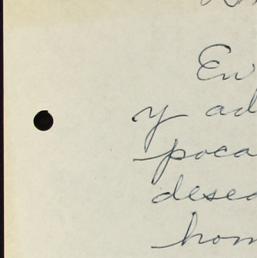 En
y ad
poca
desea
hom